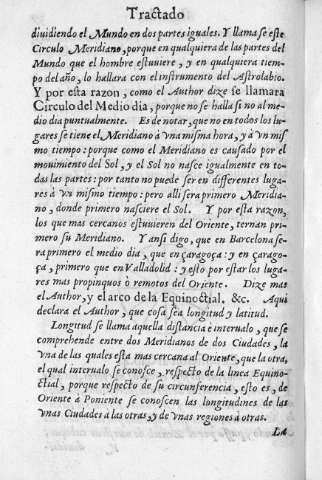 Tractado
diuidiendo el Mundo en dos partes iguales. Y llama se este
Circulo Meridiano, porque en qualquiera de las partes del
Mundo que el hombre estuuiere, y en qualquiera tiem-
po del año, lo hallara con el instrumento del Astrolabio.
Y por esta razon, como el Author dize se llamara
Circulo del Medio dia, porque no se halla si no al me-
dio dia puntualmente. Es de notar, que no en todos los lu-
gares se tiene el Meridiano à vna misma hora, y à vn mis
mo tiempo: porque como el Meridiano es causado por el
mouimiento del Sol, y el Sol no nasce igualmente en to-
das las partes: por tanto no puede ser en differentes luga-
res à vn mismo tiempo: pero alli sera primero Meridia-
no, donde primero nasciere el Sol. Y por esta razon,
los que mas cercanos estuuieren del Oriente, ternan pri-
mero su Meridiano. Y ansi digo, que en Barcelona se-
ra primero el medio dia, que en çaragoça: y en çarago-
ça, primero que en Valladolid: y esto por estar los luga-
res mas propinquos ò remotos del Oriente. Dize mas
el Author, y el arco de la Equinoctial, &c. Aqui
declara el Author, que cosa sea longitud y latitud.
Longitud se llama aquella distancia è interualo, que se
comprehende entre dos Meridianos de dos Ciudades, la
vna de las quales esta mas cercana al Oriente, que la otra,
el qual interualo se conosce, respecto de la linea Equino-
ctial, porque respecto de su circunferencia, esto es, de
Oriente à Poniente se conoscen las longitudines de las
vnas Ciudades a las otras, y de vnas regiones à otras.
La